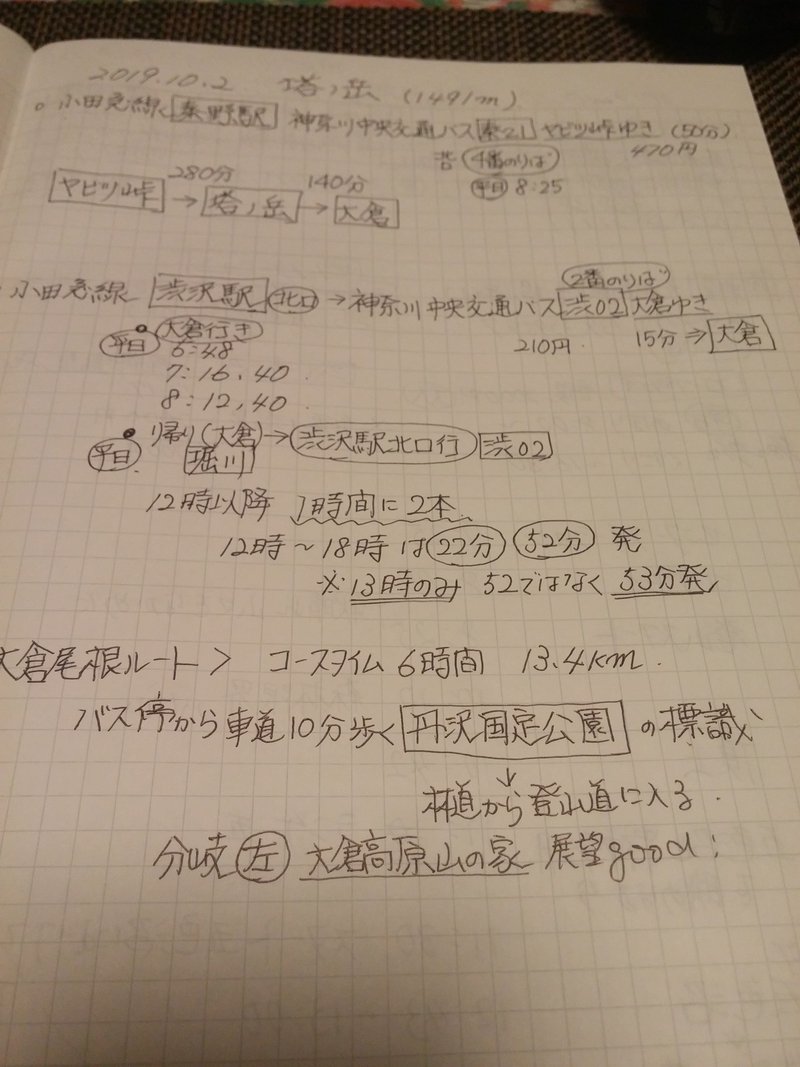 2019.10.2 塔ノ岳 (1491m)
小田急線 秦野駅 神奈川中央交通バス 秦21 ヤビツ峠ゆき (50分)
4番のりば 470円
平日 8:25
280分 140分
ヤビツ峠 → 塔ノ岳 → 大倉
2番のりば
小田急線 渋沢駅 北口 → 神奈川中央交通バス 渋02 大倉ゆき
210円 15分 ⇒ 大倉
大倉行き
平日 6:48
7:16, 40
8:12, 40
帰り(大倉) → 渋沢駅北口行 渋02
平日 堀川
12時以降 1時間に2本
12時〜18時は 22分 52分 発
※13時のみ 52ではなく 53分発
大倉尾根ルート> コースタイム 6時間 13.4km.
バス停から車道10分歩く 丹沢国定公園 の標識
↓
林道から登山道に入る.
分岐 左 大倉高原山の家 展望good!